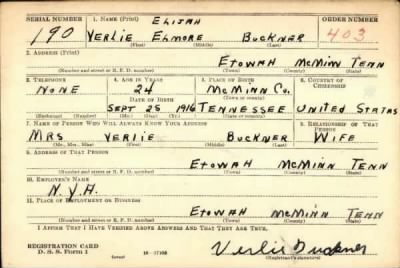 SERIAL NUMBER 1. NAME (Print) ELIJAH ORDER NUMBER
190 VERLIE ELMORE BUCKNER 403
(First) (Middle) (Last)
2. ADDRESS (Print)
ETOWAH McMINN TENN
(Number and street or R. F. D. number) (Town) (County) (State)
3. TELEPHONE 4. AGE IN YEARS 5. PLACE OF BIRTH 6. COUNTRY OF CITIZENSHIP
NONE 24 McMINN CO.
DATE OF BIRTH
SEPT 25 1916 TENNESSEE UNITED STATES
(Exchange) (Number) (Mo.) (Day) (Yr.) (State or country)
7. NAME OF PERSON WHO WILL ALWAYS KNOW YOUR ADDRESS 8. RELATIONSHIP OF THAT PERSON
MRS VERLIE BUCKNER WIFE
(Mr., Mrs., Miss) (First) (Middle) (Last)
9. ADDRESS OF THAT PERSON
ETOWAH McMINN TENN
(Number and street or R. F. D. number) (Town) (County) (State)
10. EMPLOYER'S NAME
N.Y.A.
11. PLACE OF EMPLOYMENT OR BUSINESS
ETOWAH McMINN TENN
(Number and street or R. F. D. number) (Town) (County) (State)
I AFFIRM THAT I HAVE VERIFIED ABOVE ANSWERS AND THAT THEY ARE TRUE.
REGISTRATION CARD
D. S. S. Form 1 Verlie Buckner
(Registrant's signature)